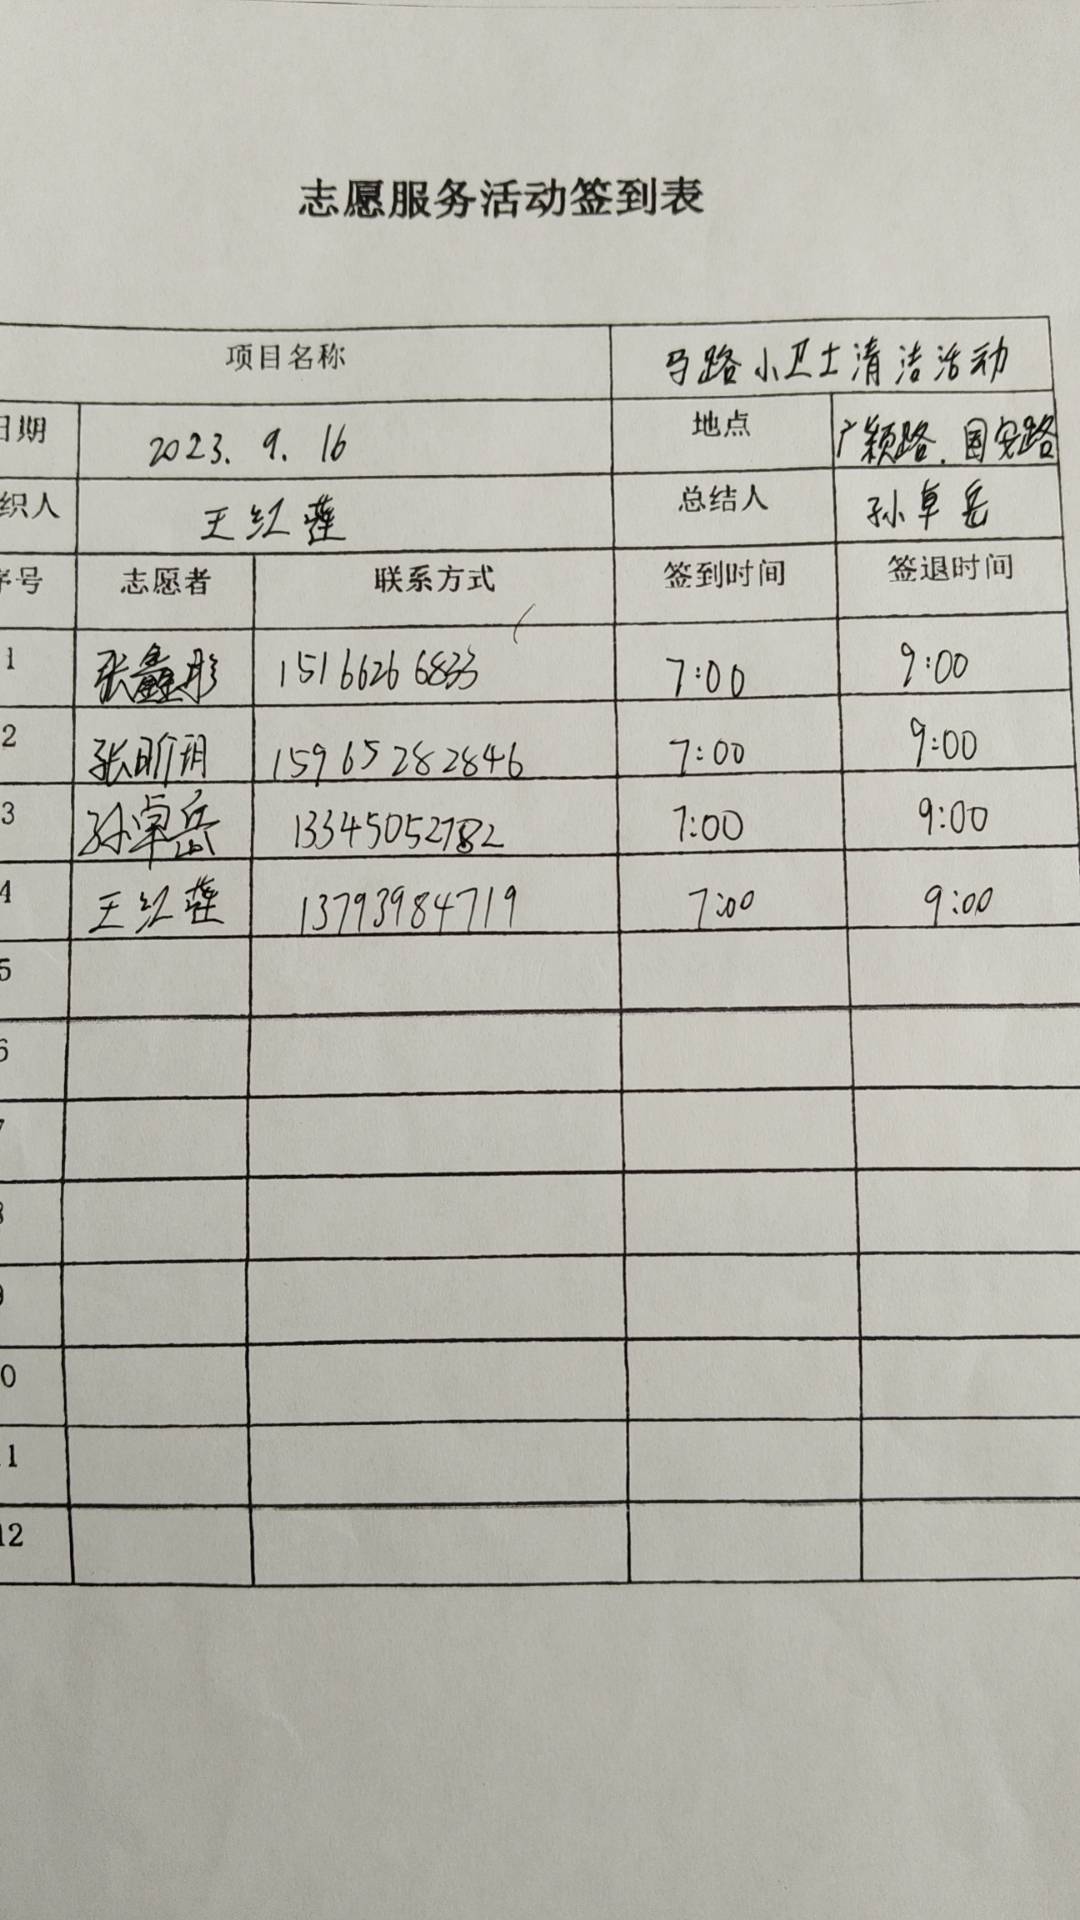 志愿服务活动签到表
项目名称 马路小卫士清洁活动
日期 2023. 9. 16 地点 广颖路、国安路
织人 王红莲 总结人 孙卓岳
序号 志愿者 联系方式 签到时间 签退时间
1 张鑫彤 15166266833 7:00 9:00
2 15965282846 7:00 9:00
3 孙卓岳 13345052782 7:00 9:00
4 王红莲 13793984719 7:00 9:00
5
6
7
8
9
10
11
12